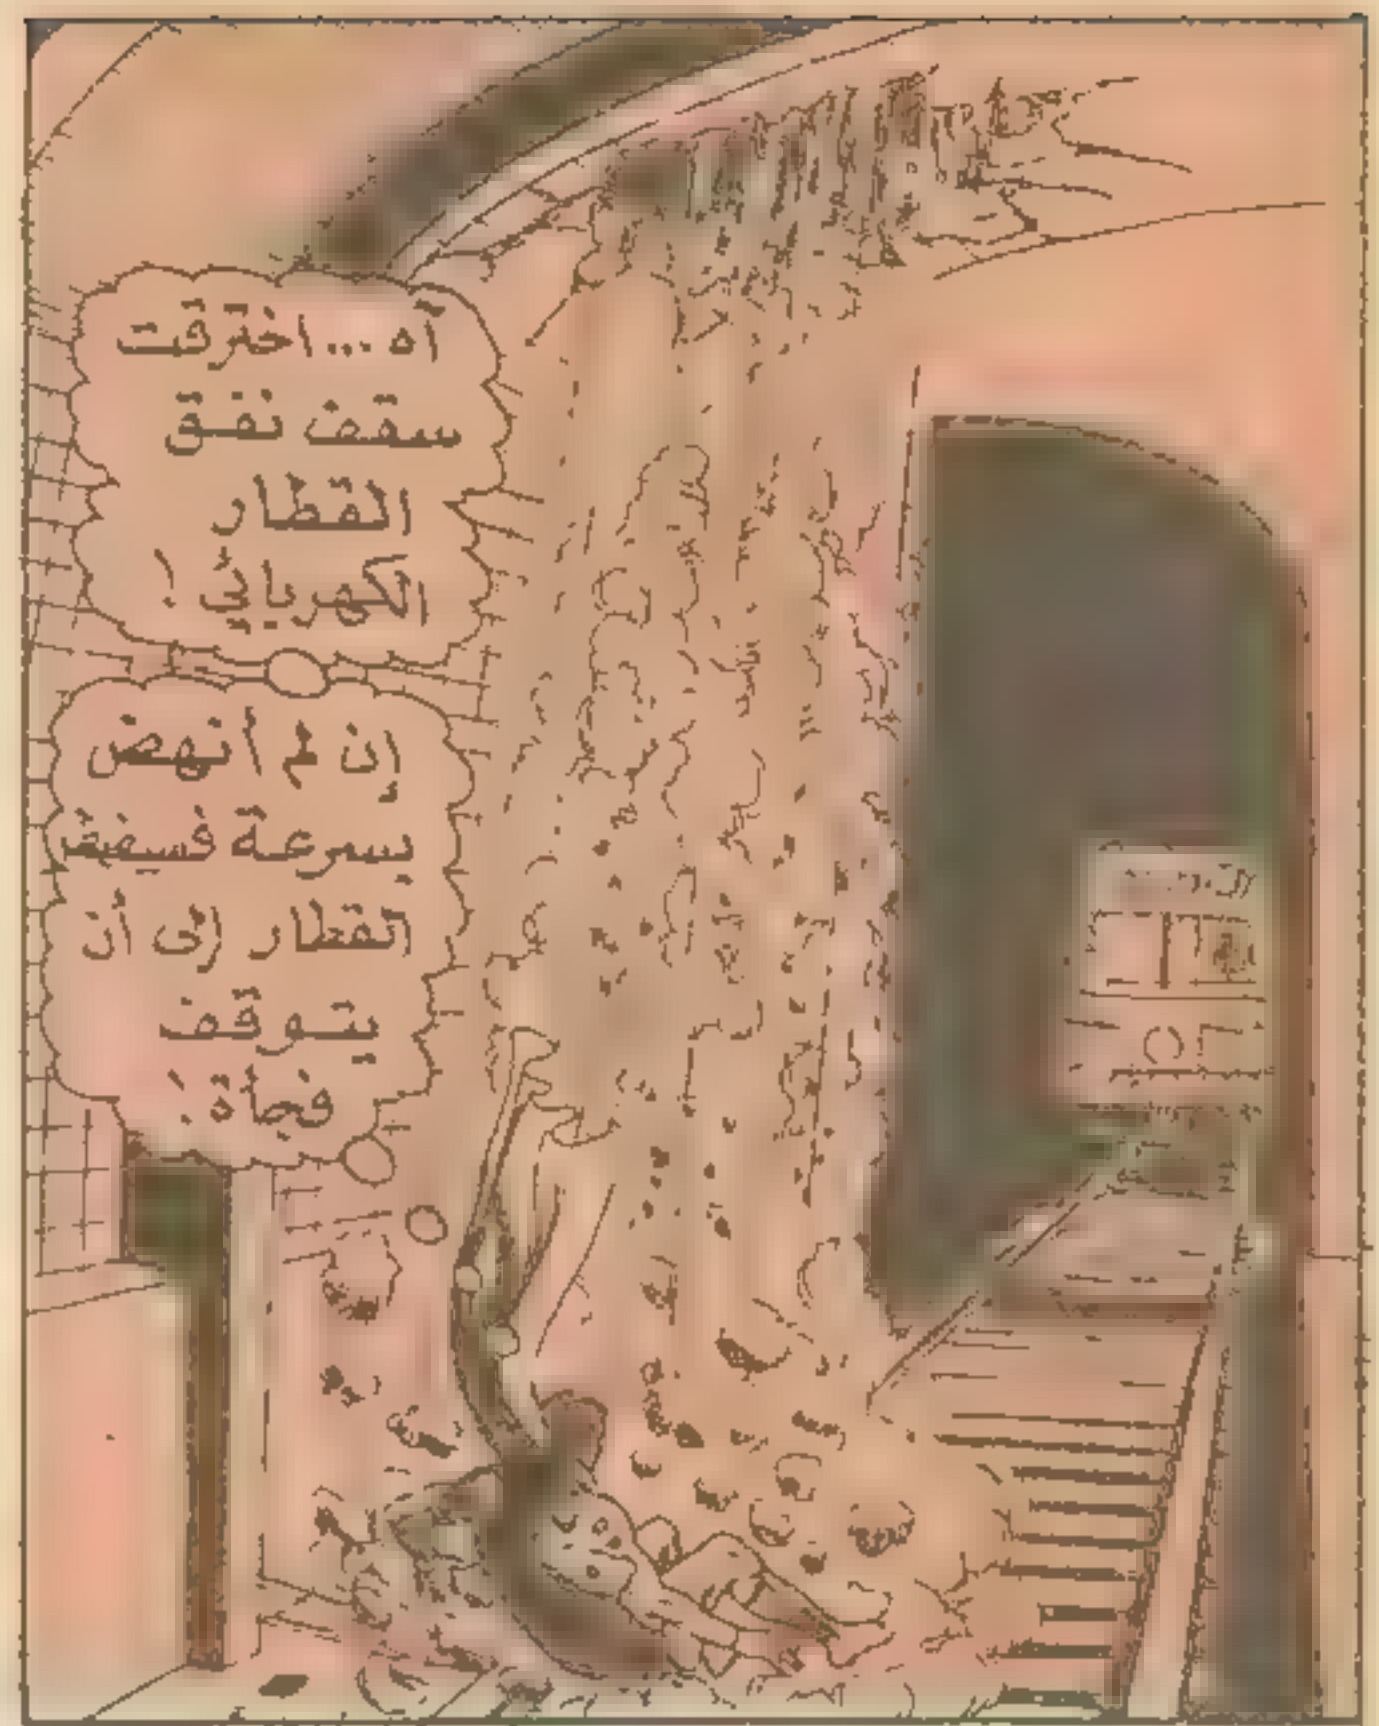 آه ... اخترقت
سقف نفق
القطار
الكهربائي !
إن لم أنهض
بسرعة فسيضـ
القطار إلى أن
يتوقف
فجأة !